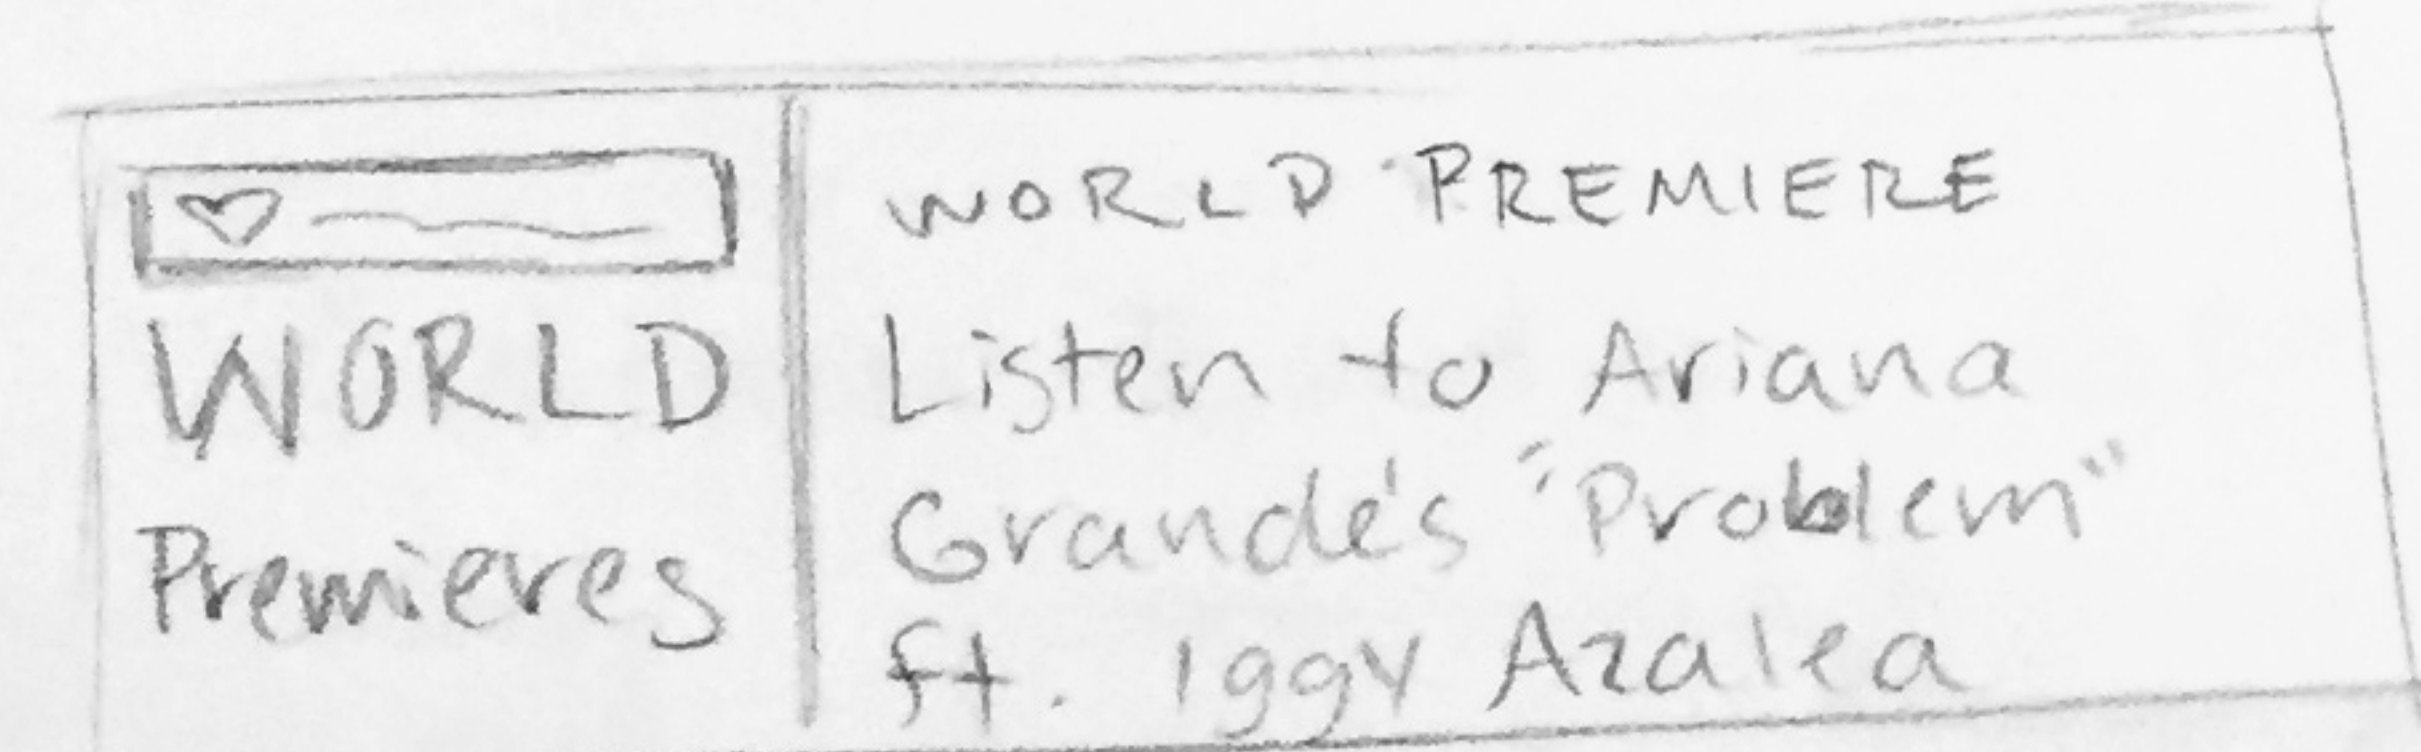 WORLD
Premieres
WORLD PREMIERE
Listen to Ariana
Grande's "Problem"
ft. Iggy Azalea